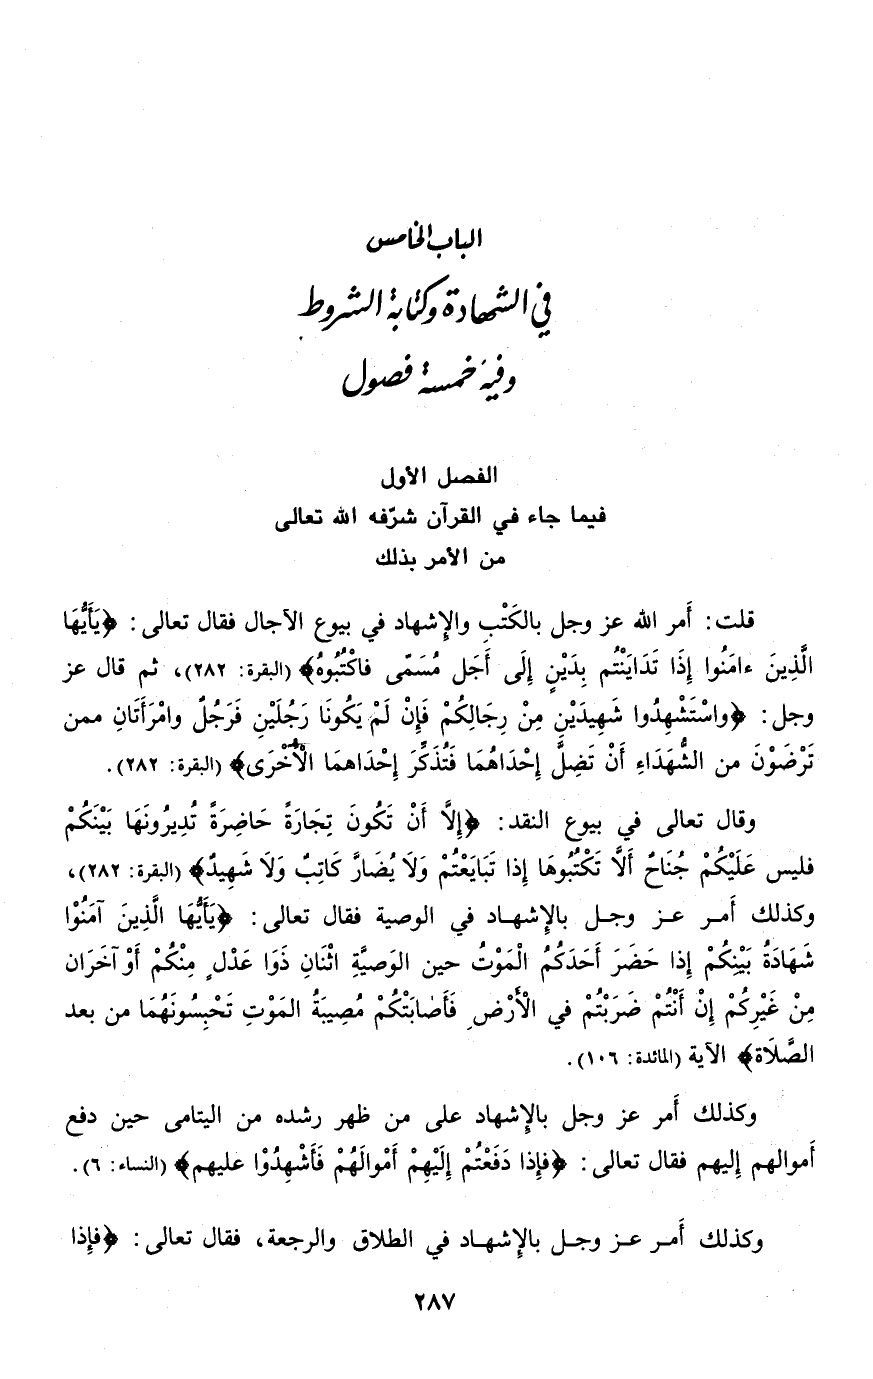 الباب الخامس
في الشهادة وكتابة الشروط
وفيه خمسة فصول
الفصل الأول
فيما جاء في القرآن شرّفه الله تعالى
من الأمر بذلك
قلت: أَمر الله عز وجل بالكَتْبِ والإِشهاد في بيوع الآجال فقال تعالى: ﴿يَأَيُّهَا
الَّذِينَ ءامَنُوا إِذَا تَدَايَنْتُم بِدَيْنٍ إِلَى أَجَل مُسَمّى فاكْتُبُوهُ﴾ (البقرة: ٢٨٢)، ثم قال عز
وجل: ﴿واسْتَشْهِدُوا شَهِيدَيْنِ مِنْ رِجَالِكُمْ فَإِنْ لَمْ يَكُونَا رَجُلَيْنِ فَرَجُلٌ وامْرَأَتَانِ ممن
تَرْضَوْنَ من الشُّهَدَاءِ أَنْ تَضِلَّ إِحْدَاهُمَا فَتُذَكِّرَ إِحْدَاهما الْأُخْرَى﴾ (البقرة: ٢٨٢).
وقال تعالى في بيوع النقد: ﴿إِلَّا أَنْ تَكُونَ تِجَارَةً حَاضِرَةً تُدِيرُونَهَا بَيْنَكُمْ
فليس عَلَيْكُمْ جُنَاحٌ أَلَّا تَكْتُبُوهَا إِذا تَبَايَعْتُمْ وَلَا يُضَارَّ كَاتِبٌ وَلَا شَهِيدٌ﴾ (البقرة: ٢٨٢)،
وكذلك أَمر عز وجل بالإِشهاد في الوصية فقال تعالى: ﴿يَأَيُّهَا الَّذِينَ آمَنُوْا
شَهَادَةُ بَيْنِكُمْ إِذا حَضَرَ أَحَدَكُمُ الْمَوْتُ حين الوَصيَّةِ اثْنَانِ ذَوَا عَدْلٍ مِنْكُمْ أَوْ آخَرَان
مِنْ غَيْرِكُمْ إِنْ أَنْتُمْ ضَرَبْتُمْ في الْأَرْضِ فَأَصَابَتْكُمْ مُصِيبَةُ المَوْتِ تَحْبِسُونَهُمَا من بعد
الصَّلَاة﴾ الآية (المائدة: ١٠٦).
وكذلك أَمر عز وجل بالإِشهاد على من ظهر رشده من اليتامى حين دفع
أَموالهم إِليهم فقال تعالى: ﴿فإِذا دَفَعْتُمْ إِلَيْهِمْ أَمْوالَهُمْ فَأَشْهِدُوْا عليهم﴾ (النساء: ٦).
وكذلك أَمر عز وجل بالإِشهاد في الطلاق والرجعة، فقال تعالى: ﴿فإِذا
٢٨٧